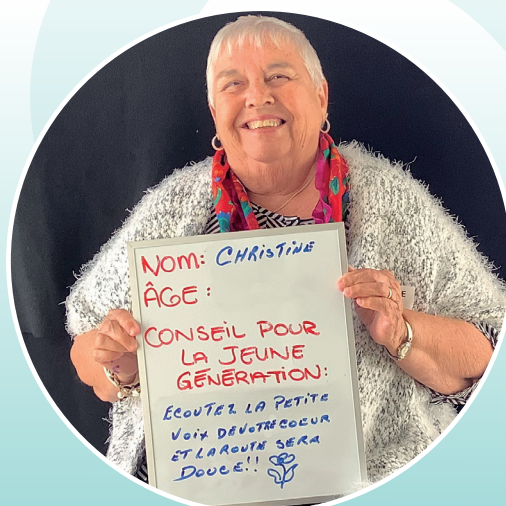 NOM: CHRISTINE
ÂGE:
CONSEIL POUR
LA JEUNE
GÉNÉRATION:
ECOUTEZ LA PETITE
VOIX DE VOTRE COEUR
ET LA ROUTE SERA
DOUCE!!